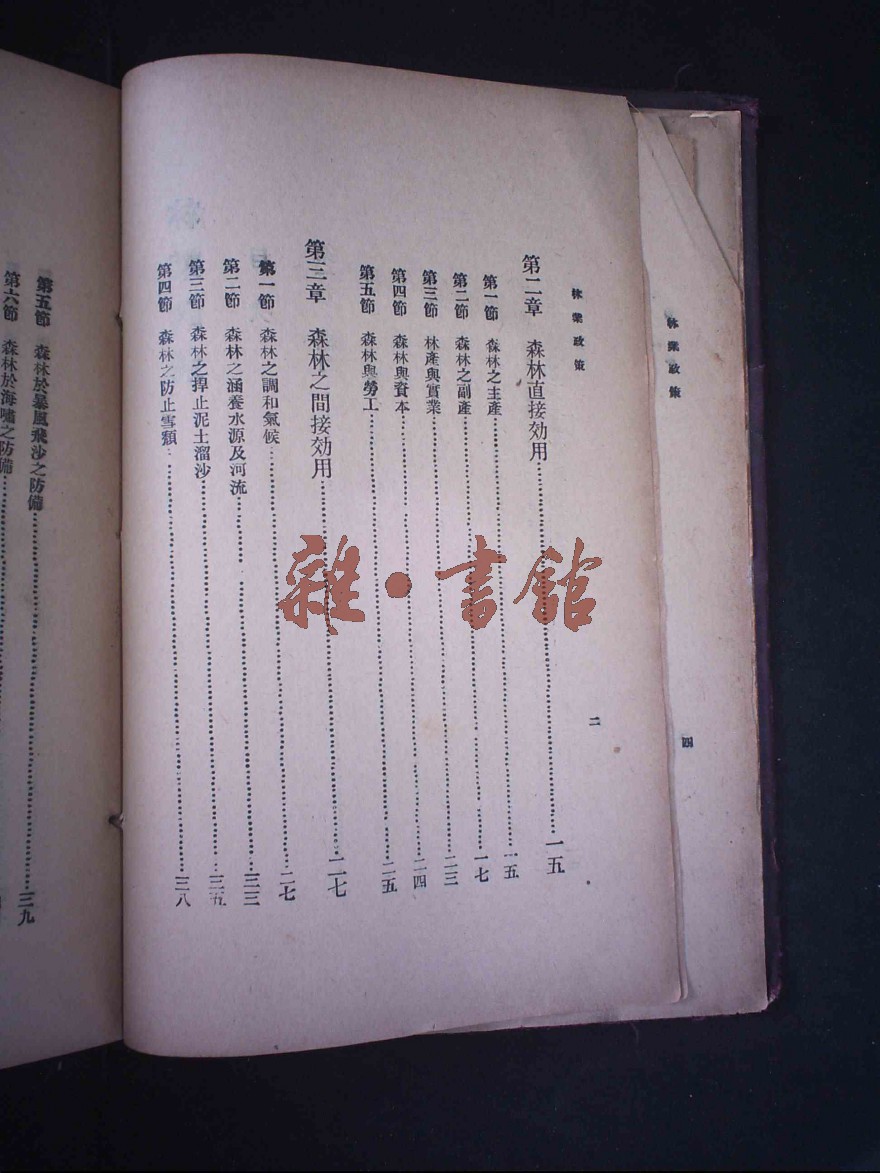 林業政策
四
林業政策
二
第二章 森林直接効用………一五
第一節 森林之主產………一五
第二節 森林之副產………一七
第三節 林產與實業………二三
第四節 森林與資本………二四
第五節 森林與勞工………二五
第三章 森林之間接効用………二七
第一節 森林之調和氣候………二七
第二節 森林之涵養水源及河流………三三
第三節 森林之捍止泥土溜沙………三五
第四節 森林之防止雪頹………三八
第五節 森林於暴風飛沙之防備………三九
第六節 森林於海嘯之防備………
雜·書館